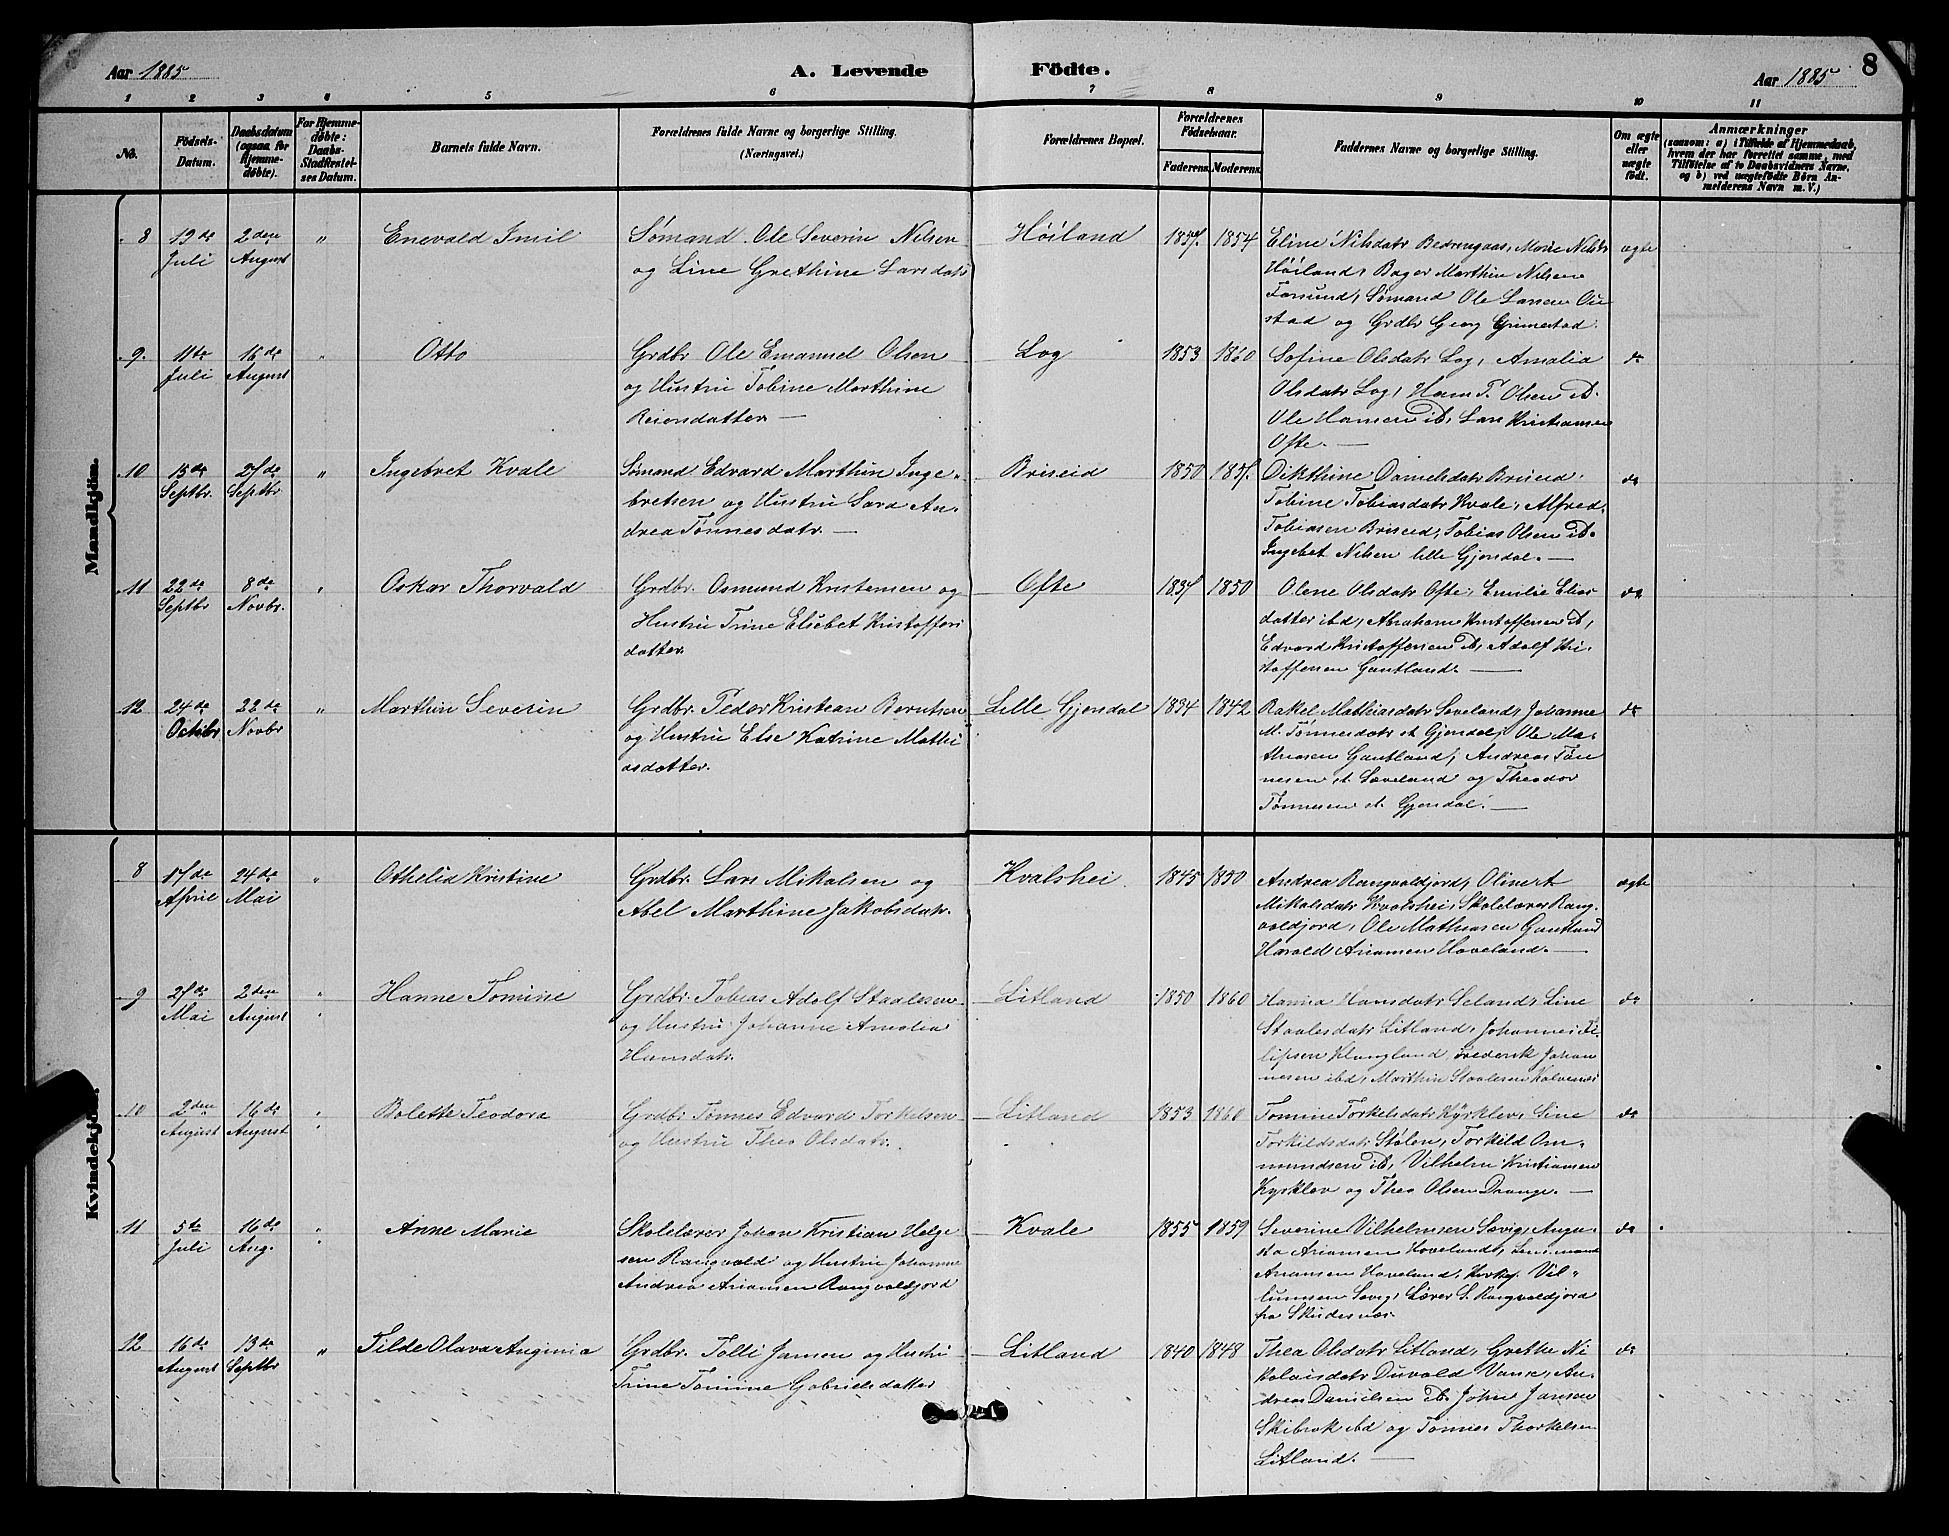 Aar 1885
A. Levende Födte.
Aar 1885
8
1 2 3 4 5 6 7 8 9 10 11
No.
Födsels-Datum.
Daabsdatum (ogsaa for Hjemmedöbte).
For Hjemmedöbte: Daabs-Stadfæstelses Datum.
Barnets fulde Navn.
Forældrenes fulde Navne og borgerlige Stilling. (Næringsvei.)
Forældrenes Bopæl.
Forældrenes Födselsaar.
Faderens. Moderens.
Faddernes Navne og borgerlige Stilling.
Om ægte eller uægte født.
Anmærkninger
(saasom: a) i Tilfælde af Hjemmedaab, hvem der har forrettet samme, med Tilföielse af to Daabsvidners Navne, og b) ved uægtefödte Börn Anmelderens Navn m. V.)
Mandkjön.
8 19de Juli 2den August " Enevald Emil
Sømand Ole Severin Nilsen
og Line Grethine Larsdatr
Höiland 1857 1854
Eline Nilsdatr Marie Nilsdr
Höiland, Bager Marthin Nilsen
Farsund, Sømand Ole Larsen Ou
stad og Grdbr Georg Grimestad.
ægte
9. 11te Juli 16de August " Otto
Grdbr Ole Emanuel Olsen
og Hustru Tobine Marthine
Reiersdatter —
Log 1853 1860
Sofine Olsdatr Log, Amalia
Olsdatr Log, Hans T. Olsen ibd.
Ole Hansen ibd, Lars Kristiansen
Ofte. —
do
10 15de Septbr. 27de Septbr " Ingebret Kvale
Sømand Edvard Marthin Inge-
bretsen og Hustru Sara An-
drea Tønnesdatr —
Briseid 1850 1857
Danielsdatr Briseid.
Tobine Tobiasdatr Kvale, Alfred
Tobiasen Briseid, Tobias Olsen ibd.
Ingebet Nilsen lille Gjendal. —
do
11 22de Septbr 8de Novbr. " Oskar Thorvald
Grdbr. Osmund Kristensen og
Hustru Trine Elisebet Kristoffers
datter
Ofte 1837 1850
Olene Olsdatr Ofte, Emilie Elias
datter ibd, Abraham Kristoffersen ibd,
Edvard Kristoffersen ibd, Adolf Kri-
stoffersen Gautland. —
do
12 24de Octbr 22de Novbr " Marthin Severin
Grdbr. Peder Kristean Berntsen
og Hustru Else Katrine Mathi
asdatter.
Lille Gjendal 1834 1842
Rakel Mathiasdatr Soveland, Johanne
M. Tönnesdatr st Gjendal, Ole Ma-
thiasen Gautland, Andreas Tön
nesen st Soveland og Theodor
Tönnesen st. Gjendal. —
do
Kvindekjön.
8 17de April 24de Mai " Othelia Kristine
Grdbr. Lars Mikalsen og
Abel Marthine Jakobsdatr.
Kvalshei 1845 1850
Andrea Rangvaldjord, Oline A
Mikalsdatr Kvalshei, Skolelærer Rang-
valdjord, Ole Mathiasen Gautland
Harald Ariansen Hoveland. —
ægte
9 27de Mai 2den August " Hanne Tomine
Grdbr. Tobias Adolf Staalesen
og Hustru Johanne Amalia
Hansdatr.
Litland 1850 1860
Hanna Hansdatr Seland, Line
Staalesdatr Litland, Johannes Fi-
lipsen Klungland, Frederik Johan
nesen ibd, Marthin Staalesen Kalvenes
do
10 2den August 16de August " Bolette Teodora
Grdbr Tønnes Edvard Torkelsen
og Hustru Thea Olsdatr.
Litland 1853 1860
Tomine Torkelsdatr Kyrklev, Sine
Torkildsdatr Stølen, Torkild Om-
mundsen ibd, Vilhelm Kristiansen
Kyrklev og Theo Olsen Drange. —
do
11 5te Juli 16de Aug. " Anne Marie
Skolelærer Johan Kristian Helge
sen Rangvald og Hustru Johanne
Andrea Ariansen Rangvaldjord
Kvale 1855 1859
Severine Vilhelmsen Sævig, Augu-
sta Ariansen Hoveland, Lensmand
Ariansen Hoveland, Kirkesj. Vil-
lumsen Sævig, Lærer S. Rangvaldjord
fra Skudesnæs.
do
12 16de August 13de Septbr " Tilde Olava Auginia
Grdbr. Tolli Jansen og Hustru
Trine Tomine Gabrielsdatter
Litland 1840 1848
Thea Olsdatr Litland, Grethe Ni
kolaisdatr Duvold Vanse, An-
dreas Danielsen ibd. John Jansen
Skibrok ibd og Tønnes Thorkelsen
Litland. —
do